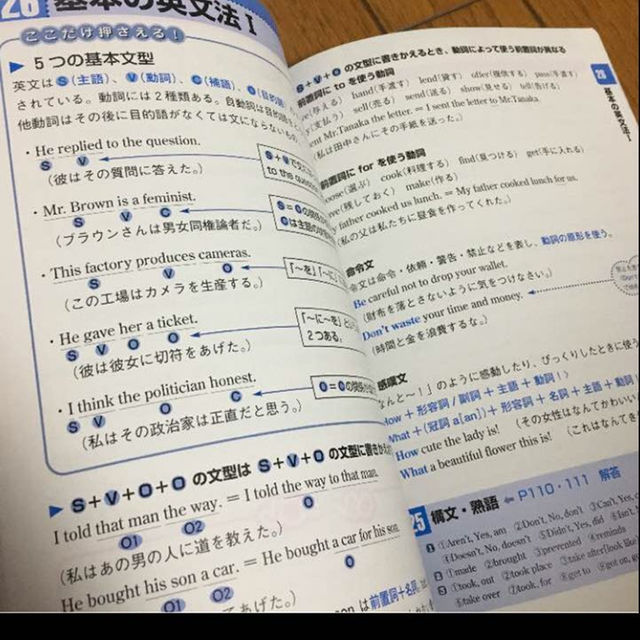 28 基本の英文法 I
ここだけ押さえる!
▶ 5つの基本文型
英文は S(主語)、V(動詞)、C(補語)、O(目的語)
されている。動詞には2種類ある。自動詞は目的語
他動詞はその後に目的語がなくては文にならない
・He replied to the question.
S V
(彼はその質問に答えた。)
to the question
・Mr. Brown is a feminist.
S V C
(ブラウンさんは男女同権論者だ。)
S=Cの関係
Cは主語の
・This factory produces cameras.
S V O
(この工場はカメラを生産する。)
「〜を」「〜に
・He gave her a ticket.
S V O O
(彼は彼女に切符をあげた。)
「〜に〜を」とい
2つある。
・I think the politician honest.
S V O C
(私はその政治家は正直だと思う。)
▶ S+V+O+O の文型は S+V+O の文型に書きかえ
I told that man the way. = I told the way to that man.
O1 O2 O
(私はあの男の人に道を教えた。)
He bought his son a car. = He bought a car for his son.
O1 O2 O
てあげた。)
は前置詞+名詞、
S+V+O の文型に書きかえるとき、動詞によって使う前置詞が異なる
前置詞に to を使う動詞
(与える) hand(手渡す) lend(貸す) offer(提供する) pass(手渡す)
(支払う) sell(売る) send(送る) show(見せる) tell(告げる)
sent Mr.Tanaka the letter. = I sent the letter to Mr.Tanaka.
(私は田中さんにその手紙を送った。)
前置詞に for を使う動詞
(選ぶ) cook(料理する) find(見つける) get(手に入れる)
(残しておく) make(作る)
father cooked us lunch. = My father cooked lunch for us.
(私の父は私たちに昼食を作ってくれた。)
命令文
文は命令・依頼・警告・禁止などを表し、動詞の原形を使う。
Be careful not to drop your wallet.
(財布を落とさないように気をつけなさい。)
Don't waste your time and money.
(時間と金を浪費するな。)
感嘆文
なんと〜!」のように感動したり、びっくりしたときに使う
How + 形容詞/副詞 + 主語 + 動詞!)
What +(冠詞 a[an])+ 形容詞 + 名詞 + 主語 + 動詞!
How cute the lady is! (その女性はなんてかわいい
What a beautiful flower this is! (これはなんてき
28
基本の英文法 I
25 構文・熟語 ⇐ P110・111 解答
❶ ①Aren't, Yes, am ②Don't, No, don't ③Can't, Yes,
④Doesn't, No, doesn't ⑤Didn't, Yes, did
①made ②brought ③prevented ④reminds
①took, out ②took place ③take after[look like]
⑥take over ⑦took, for ⑧get to ⑨got on, g